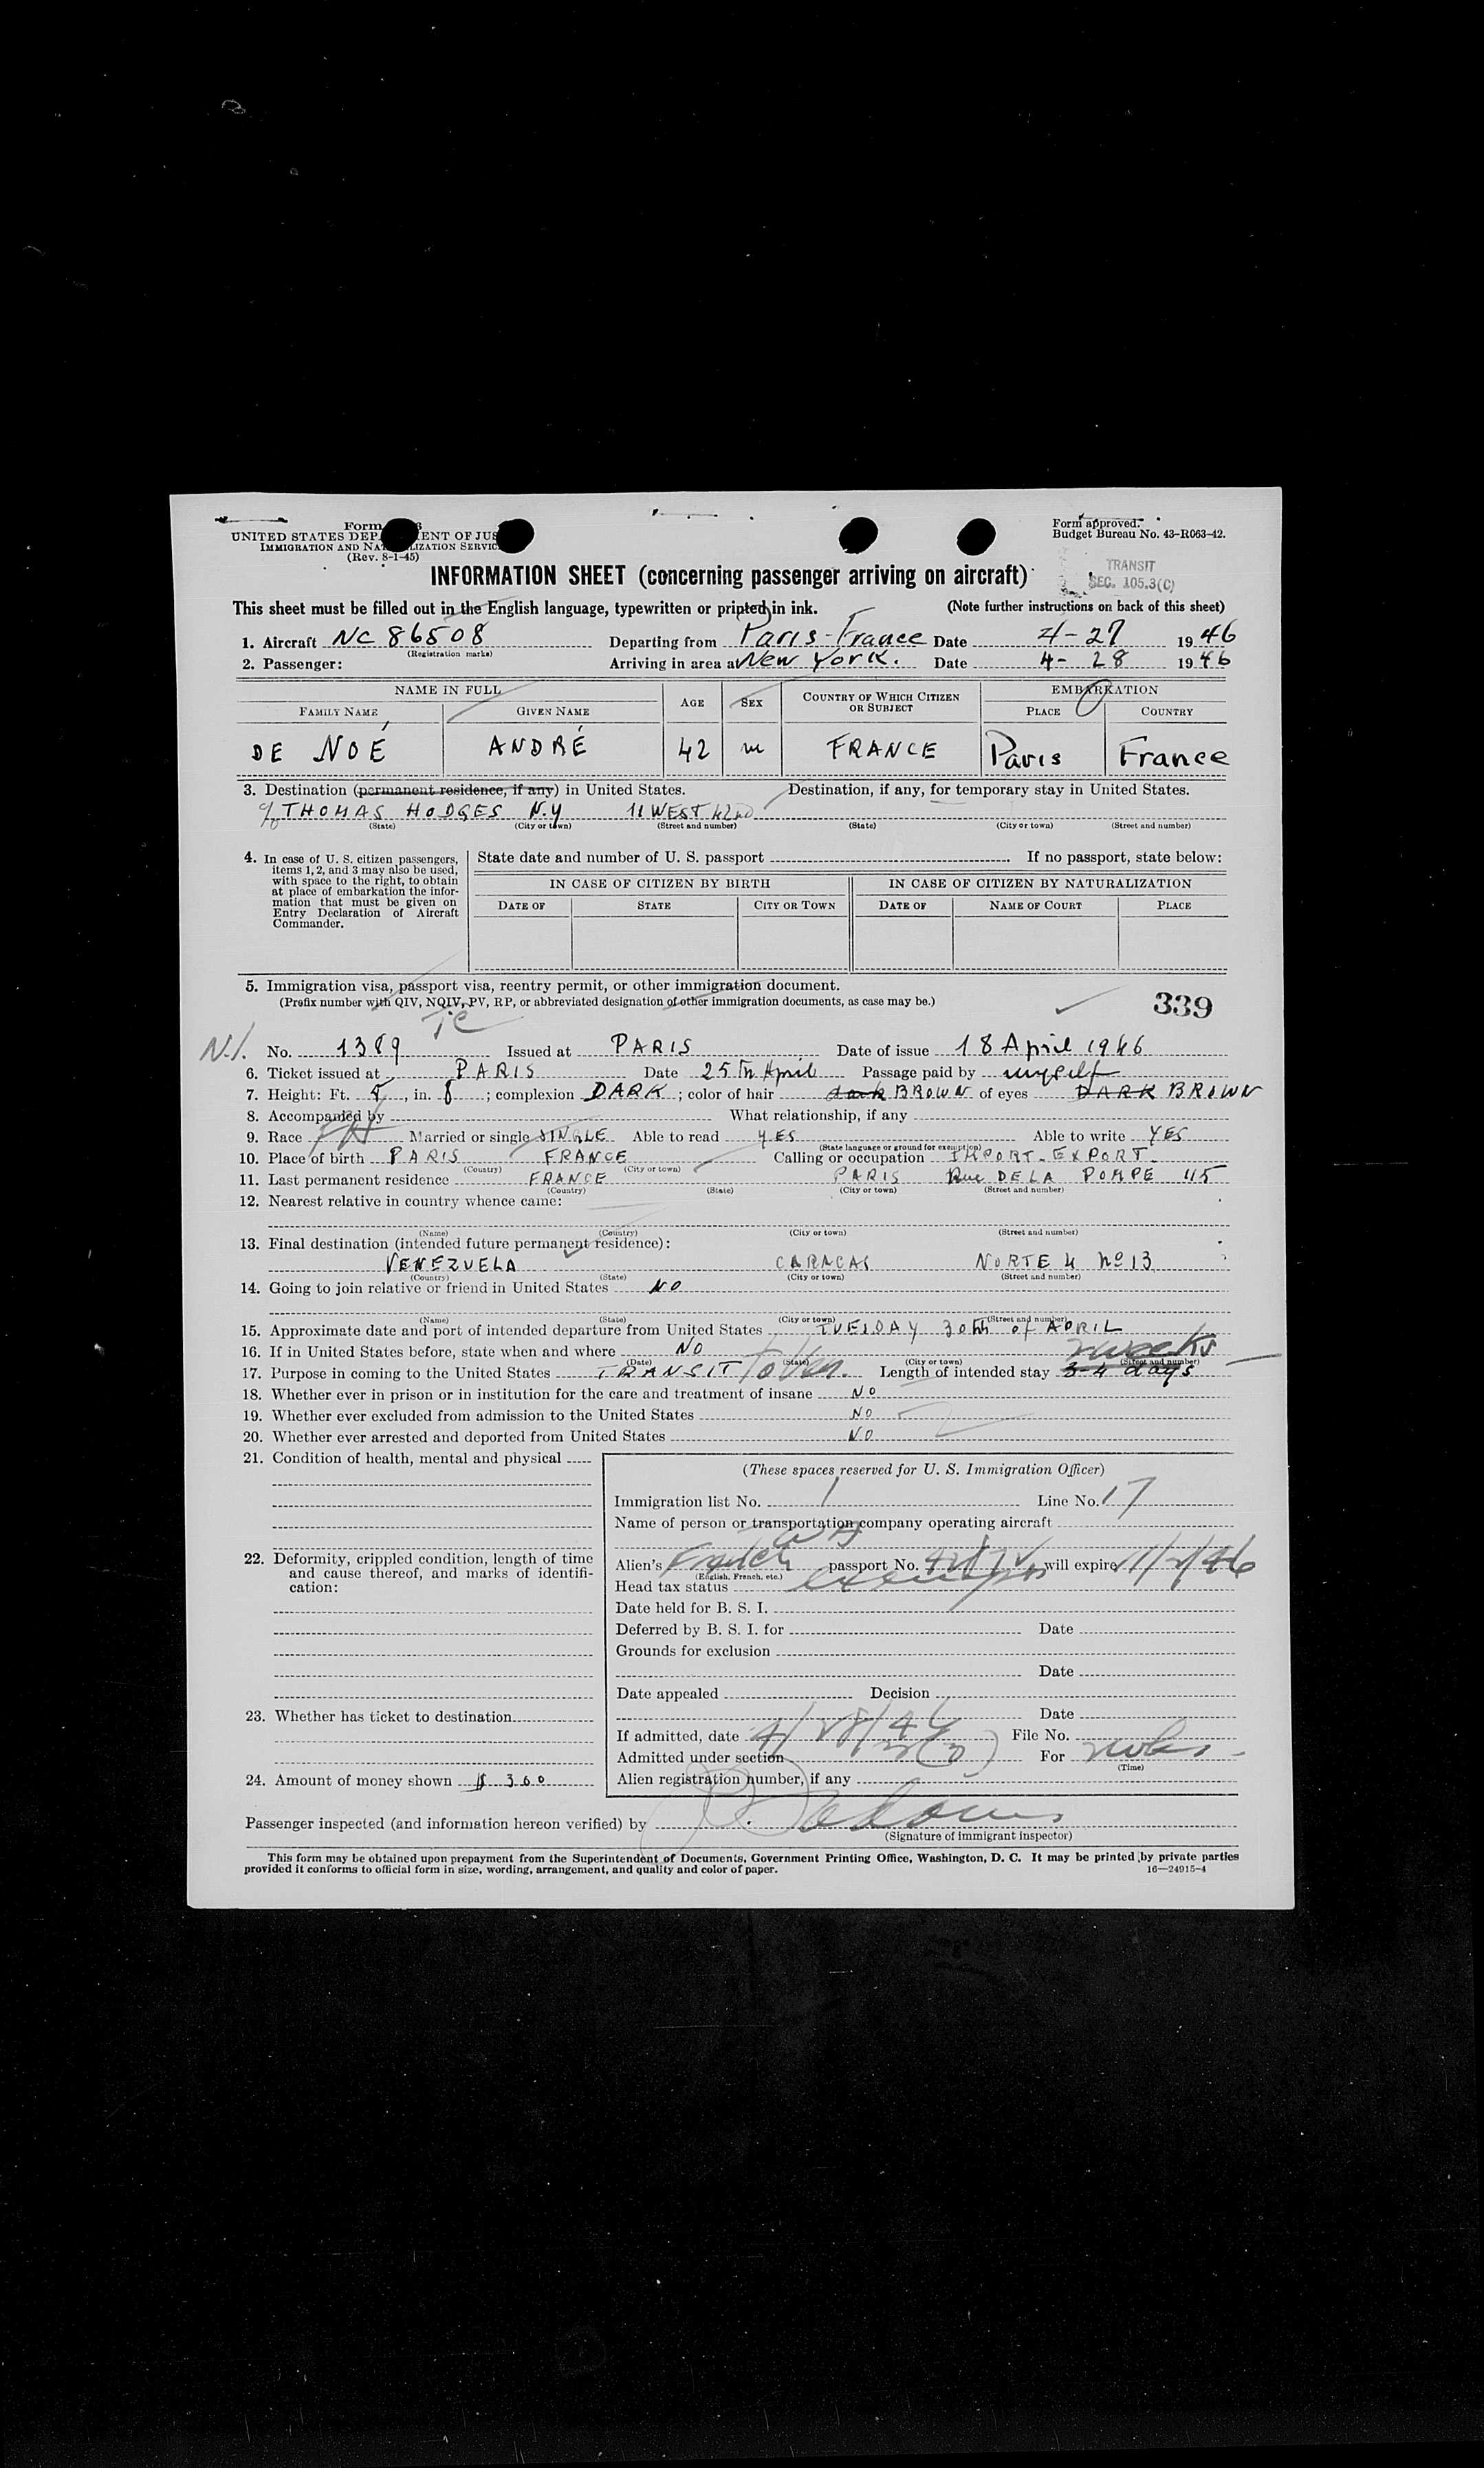 Form
UNITED STATES DEP ENT OF JUS
IMMIGRATION AND NA IZATION SERVIC
(Rev. 8-1-45)
Form approved.
Budget Bureau No. 43-R063-42.
TRANSIT
SEC. 105.3(C)
INFORMATION SHEET (concerning passenger arriving on aircraft)
This sheet must be filled out in the English language, typewritten or printed in ink. (Note further instructions on back of this sheet)
1. Aircraft NC 86508 Departing from Paris-France Date 4-27 1946
(Registration marks)
2. Passenger: Arriving in area at New York. Date 4-28 1946
NAME IN FULL AGE SEX COUNTRY OF WHICH CITIZEN OR SUBJECT EMBARKATION
FAMILY NAME GIVEN NAME PLACE COUNTRY
DE NOÉ ANDRÉ 42 m FRANCE Paris France
3. Destination (permanent residence, if any) in United States. Destination, if any, for temporary stay in United States.
c/o THOMAS HODGES N.Y 11 WEST 42nd
(State) (City or town) (Street and number) (State) (City or town) (Street and number)
4. In case of U. S. citizen passengers, items 1, 2, and 3 may also be used, with space to the right, to obtain at place of embarkation the information that must be given on Entry Declaration of Aircraft Commander.
State date and number of U. S. passport If no passport, state below:
IN CASE OF CITIZEN BY BIRTH IN CASE OF CITIZEN BY NATURALIZATION
DATE OF STATE CITY OR TOWN DATE OF NAME OF COURT PLACE
5. Immigration visa, passport visa, reentry permit, or other immigration document.
(Prefix number with QIV, NQIV, PV, RP, or abbreviated designation of other immigration documents, as case may be.)
339
No. 1389 Issued at PARIS Date of issue 18 April 1946
6. Ticket issued at PARIS Date 25th April Passage paid by myself
7. Height: Ft. 5, in. 8; complexion DARK; color of hair dark BROWN of eyes DARK BROWN
8. Accompanied by What relationship, if any
9. Race Married or single SINGLE Able to read YES Able to write YES
(State language or ground for exemption)
10. Place of birth PARIS FRANCE Calling or occupation IMPORT-EXPORT
(Country) (City or town)
11. Last permanent residence FRANCE PARIS Rue DE LA POMPE 115
(Country) (State) (City or town) (Street and number)
12. Nearest relative in country whence came:
(Name) (Country) (City or town) (Street and number)
13. Final destination (intended future permanent residence):
VENEZUELA CARACAS NORTE 4 Nº 13
(Country) (State) (City or town) (Street and number)
14. Going to join relative or friend in United States NO
(Name) (State) (City or town) (Street and number)
15. Approximate date and port of intended departure from United States TUESDAY 30th of APRIL
16. If in United States before, state when and where NO
(Date) (State) (City or town) (Street and number)
17. Purpose in coming to the United States TRANSIT to Ven. Length of intended stay 3-4 days 2 weeks
18. Whether ever in prison or in institution for the care and treatment of insane NO
19. Whether ever excluded from admission to the United States NO
20. Whether ever arrested and deported from United States NO
21. Condition of health, mental and physical
22. Deformity, crippled condition, length of time and cause thereof, and marks of identification:
23. Whether has ticket to destination
24. Amount of money shown $ 300
(These spaces reserved for U. S. Immigration Officer)
Immigration list No. 1 Line No. 17
Name of person or transportation company operating aircraft
Alien's French passport No. will expire
(English, French, etc.)
Head tax status exempt
Date held for B. S. I.
Deferred by B. S. I. for Date
Grounds for exclusion
Date
Date appealed Decision
Date
If admitted, date 4/28/46 File No.
Admitted under section 3(3) For 2 wks
(Time)
Alien registration number, if any
Passenger inspected (and information hereon verified) by
(Signature of immigrant inspector)
This form may be obtained upon prepayment from the Superintendent of Documents, Government Printing Office, Washington, D. C. It may be printed by private parties
provided it conforms to official form in size, wording, arrangement, and quality and color of paper. 16—24915-4